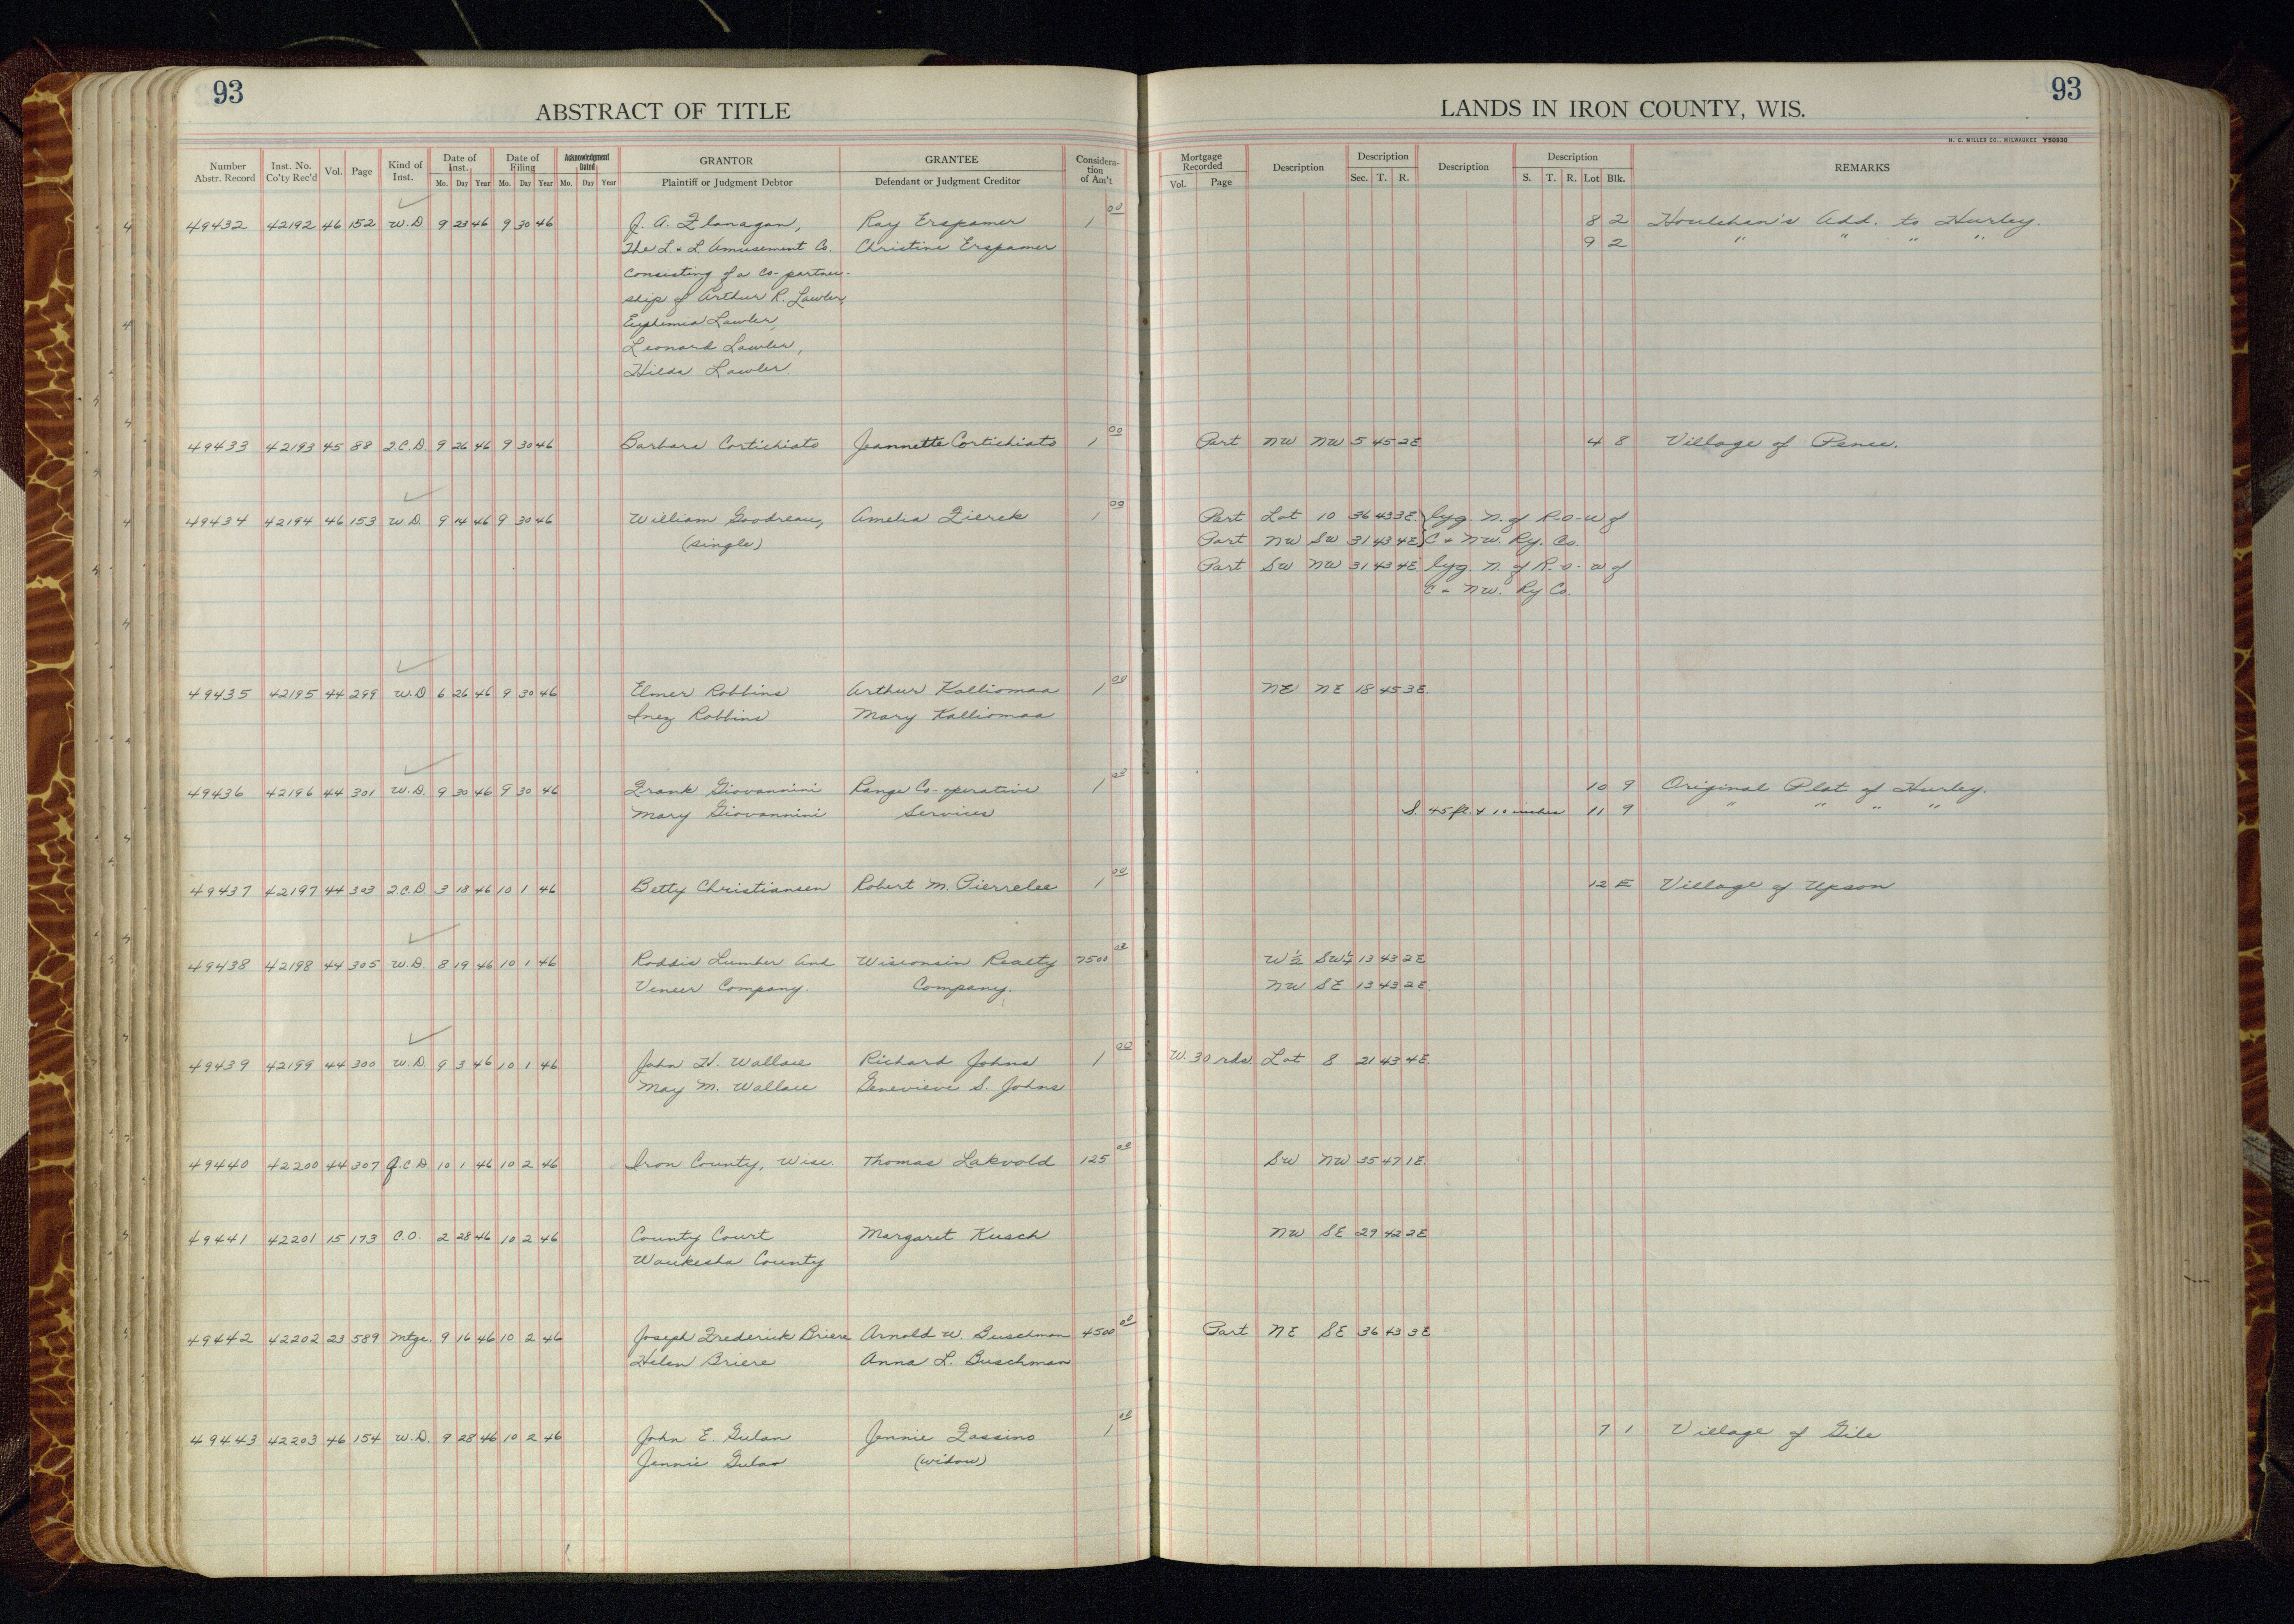 93
ABSTRACT OF TITLE
Number Abstr. Record | Inst. No. Co'ty Rec'd | Vol. | Page | Kind of Inst. | Date of Inst. Mo. Day Year | Date of Filing Mo. Day Year | Acknowledgment Dated Mo. Day Year | GRANTOR Plaintiff or Judgment Debtor | GRANTEE Defendant or Judgment Creditor | Considera-tion of Am't
49432 42192 46 152 W.D. 9 23 46 9 30 46 J. A. Flanagan, Ray Erspamer 1 00
The L & L Amusement Co. Christine Erspamer
Consisting of a Co-partner-
ship of Arthur R. Lawler,
Euphemia Lawler,
Leonard Lawler,
Hilda Lawler
49433 42193 45 88 Q.C.D. 9 26 46 9 30 46 Barbara Cortichiato Jeannette Cortichiato 1 00
49434 42194 46 153 W.D. 9 14 46 9 30 46 William Goodreau, Amelia Zierek 1 00
(single)
49435 42195 44 299 W.D 6 26 46 9 30 46 Elmer Robbins Arthur Kalliomaa 1 00
Inez Robbins Mary Kalliomaa
49436 42196 44 301 W.D. 9 30 46 9 30 46 Frank Giovannini Range Co-operative 1 00
Mary Giovannini Services
49437 42197 44 303 Q.C.D. 3 18 46 10 1 46 Betty Christiansen Robert M. Pierrelee 1 00
49438 42198 44 305 W.D. 8 19 46 10 1 46 Roddis Lumber and Wisconsin Realty 7500 00
Veneer Company. Company.
49439 42199 44 300 W.D. 9 3 46 10 1 46 John H. Wallace Richard Johns 1 00
May M. Wallace Genevieve S. Johns
49440 42200 44 307 Q.C.D. 10 1 46 10 2 46 Iron County, Wisc. Thomas Lakvold 125 00
49441 42201 15 173 C.O. 2 28 46 10 2 46 County Court Margaret Kusch
Waukesha County
49442 42202 23 589 Mtge. 9 16 46 10 2 46 Joseph Frederick Briere Arnold W. Buschman 4500 00
Helen Briere Anna L. Buschman
49443 42203 46 154 W.D. 9 28 46 10 2 46 John E. Gulan Jennie Fassino 1 00
Jennie Gulan (widow)
93
LANDS IN IRON COUNTY, WIS.
H. C. MILLER CO., MILWAUKEE Y50930
Mortgage Recorded Vol. Page | Description | Description Sec. T. R. | Description | Description S. T. R. Lot Blk. | REMARKS
8 2 Houlehan's Add. to Hurley.
9 2 " " " "
Part NW NW 5 45 2E 4 8 Village of Pence.
Part Lot 10 36 43 3E } lyg. N. of R-o-w of
Part NW SW 31 43 4E } C & NW. Ry. Co.
Part SW NW 31 43 4E lyg. N. of R-o-w of
C & NW. Ry Co.
NE NE 18 45 3E.
10 9 Original Plat of Hurley.
S. 45 ft. & 10 inches 11 9 " " " "
12 E Village of Upson
W½ SW¼ 13 43 2E
NW SE 13 43 2E
W. 30 rds Lot 8 21 43 4E
SW NW 35 47 1E.
NW SE 29 42 2E
Part NE SE 36 43 3E
7 1 Village of Gile